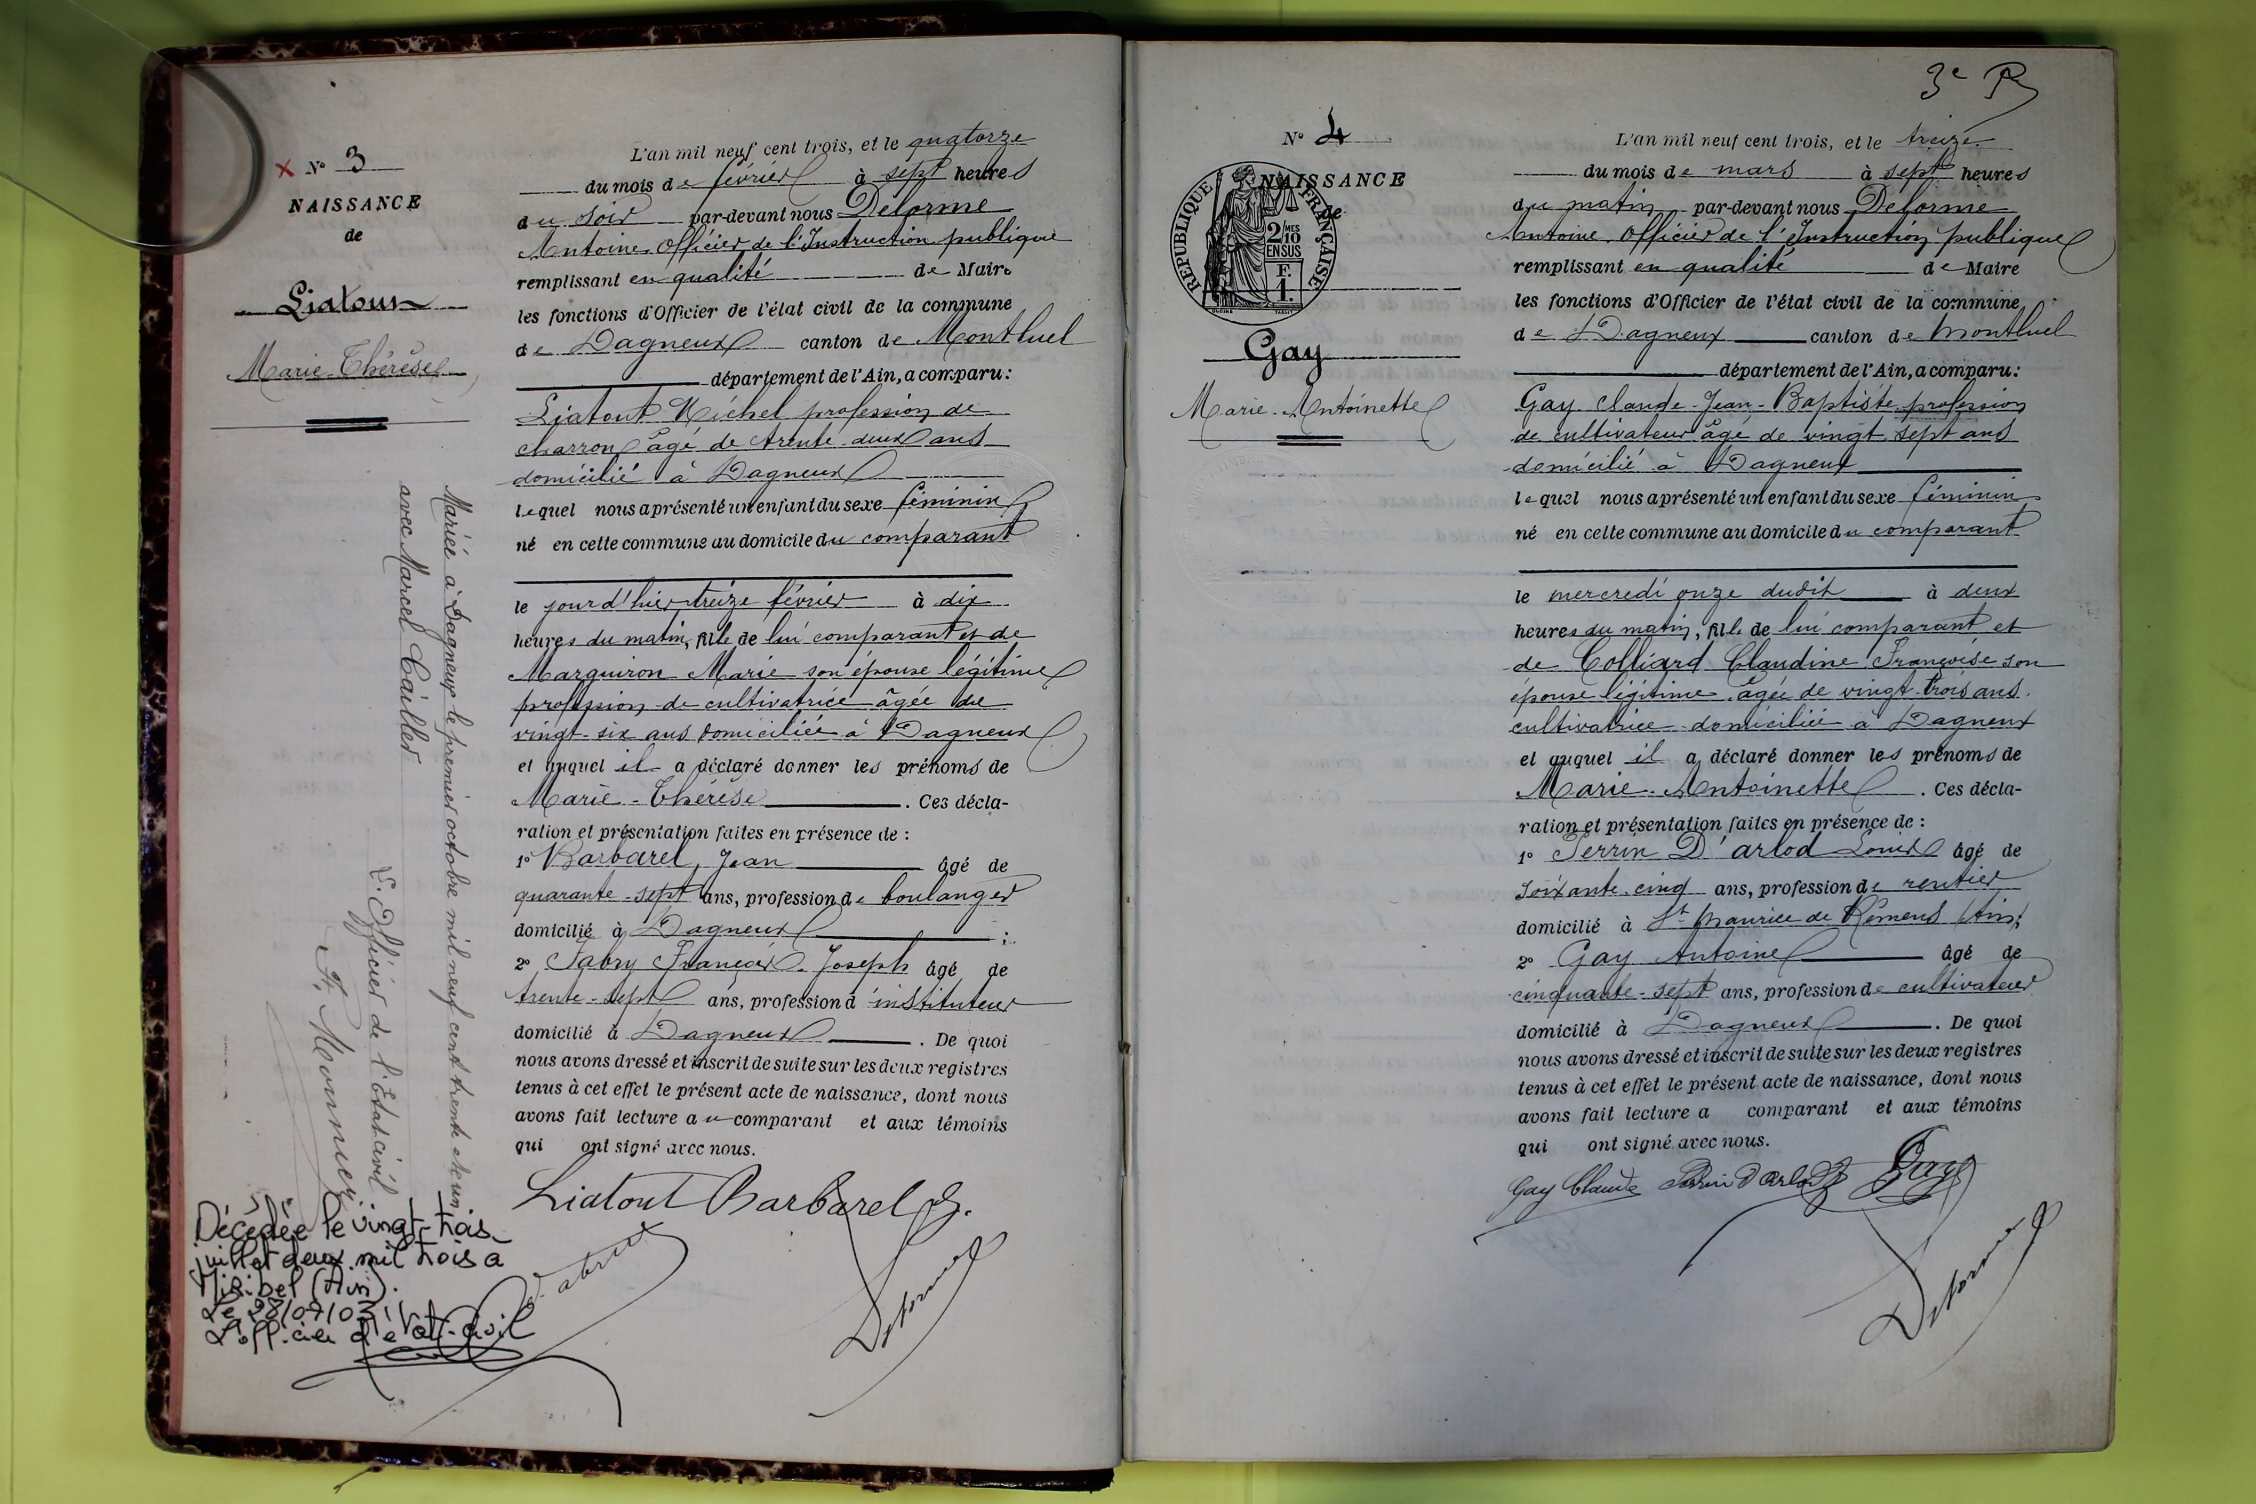 × N° 3
NAISSANCE
de
Liatout
Marie-Thérèse
Mariée à Dagneux le premier octobre mil neuf cent trente et un
avec Marcel Cailler
L'Officier de l'Etat civil
F. Monnier
Décédée le vingt-trois
juillet deux mil trois à
Miribel (Ain).
Le 28/07/03
L'officier d'état-civil
L'an mil neuf cent trois, et le quatorze
du mois de février à sept heures
du soir par-devant nous Delorme
Antoine, Officier de l'Instruction publique
remplissant en qualité de Maire
les fonctions d'Officier de l'état civil de la commune
de Dagneux canton de Montluel
département de l'Ain, a comparu :
Liatout Michel profession de
charron âgé de trente-deux ans
domicilié à Dagneux
lequel nous a présenté un enfant du sexe féminin
né en cette commune au domicile du comparant
le jour d'hier treize février à dix
heures du matin, fille de lui comparant et de
Marguiron Marie son épouse légitime
profession de cultivatrice âgée de
vingt-six ans domiciliée à Dagneux
et auquel il a déclaré donner les prénoms de
Marie-Thérèse . Ces décla-
ration et présentation faites en présence de :
1° Barbarel, Jean âgé de
quarante-sept ans, profession de boulanger
domicilié à Dagneux ;
2° Fabry François-Joseph âgé de
trente-sept ans, profession d'instituteur
domicilié à Dagneux . De quoi
nous avons dressé et inscrit de suite sur les deux registres
tenus à cet effet le présent acte de naissance, dont nous
avons fait lecture au comparant et aux témoins
qui ont signé avec nous.
Liatout Barbarel J.
Delorme
3e R
N° 4
NAISSANCE
de
RÉPUBLIQUE FRANÇAISE
2/10 MES
EN SUS
F.
1.
Gay
Marie-Antoinette
L'an mil neuf cent trois, et le treize
du mois de mars à sept heures
du matin par-devant nous Delorme
Antoine, Officier de l'Instruction publique
remplissant en qualité de Maire
les fonctions d'Officier de l'état civil de la commune
de Dagneux canton de Montluel
département de l'Ain, a comparu :
Gay Claude-Jean-Baptiste profession
de cultivateur âgé de vingt sept ans
domicilié à Dagneux
lequel nous a présenté un enfant du sexe féminin
né en cette commune au domicile du comparant
le mercredi onze dudit à deux
heures du matin, fille de lui comparant et
de Colliard Claudine Françoise son
épouse légitime âgée de vingt-trois ans
cultivatrice domiciliée à Dagneux
et auquel il a déclaré donner les prénoms de
Marie-Antoinette . Ces décla-
ration et présentation faites en présence de :
1° Perrin D'arlod Louis âgé de
soixante-cinq ans, profession de rentier
domicilié à St Maurice de Rémens (Ain) ;
2° Gay Antoine âgé de
cinquante-sept ans, profession de cultivateur
domicilié à Dagneux . De quoi
nous avons dressé et inscrit de suite sur les deux registres
tenus à cet effet le présent acte de naissance, dont nous
avons fait lecture a comparant et aux témoins
qui ont signé avec nous.
Gay Claude Perrin D'arlod Gay
Delorme